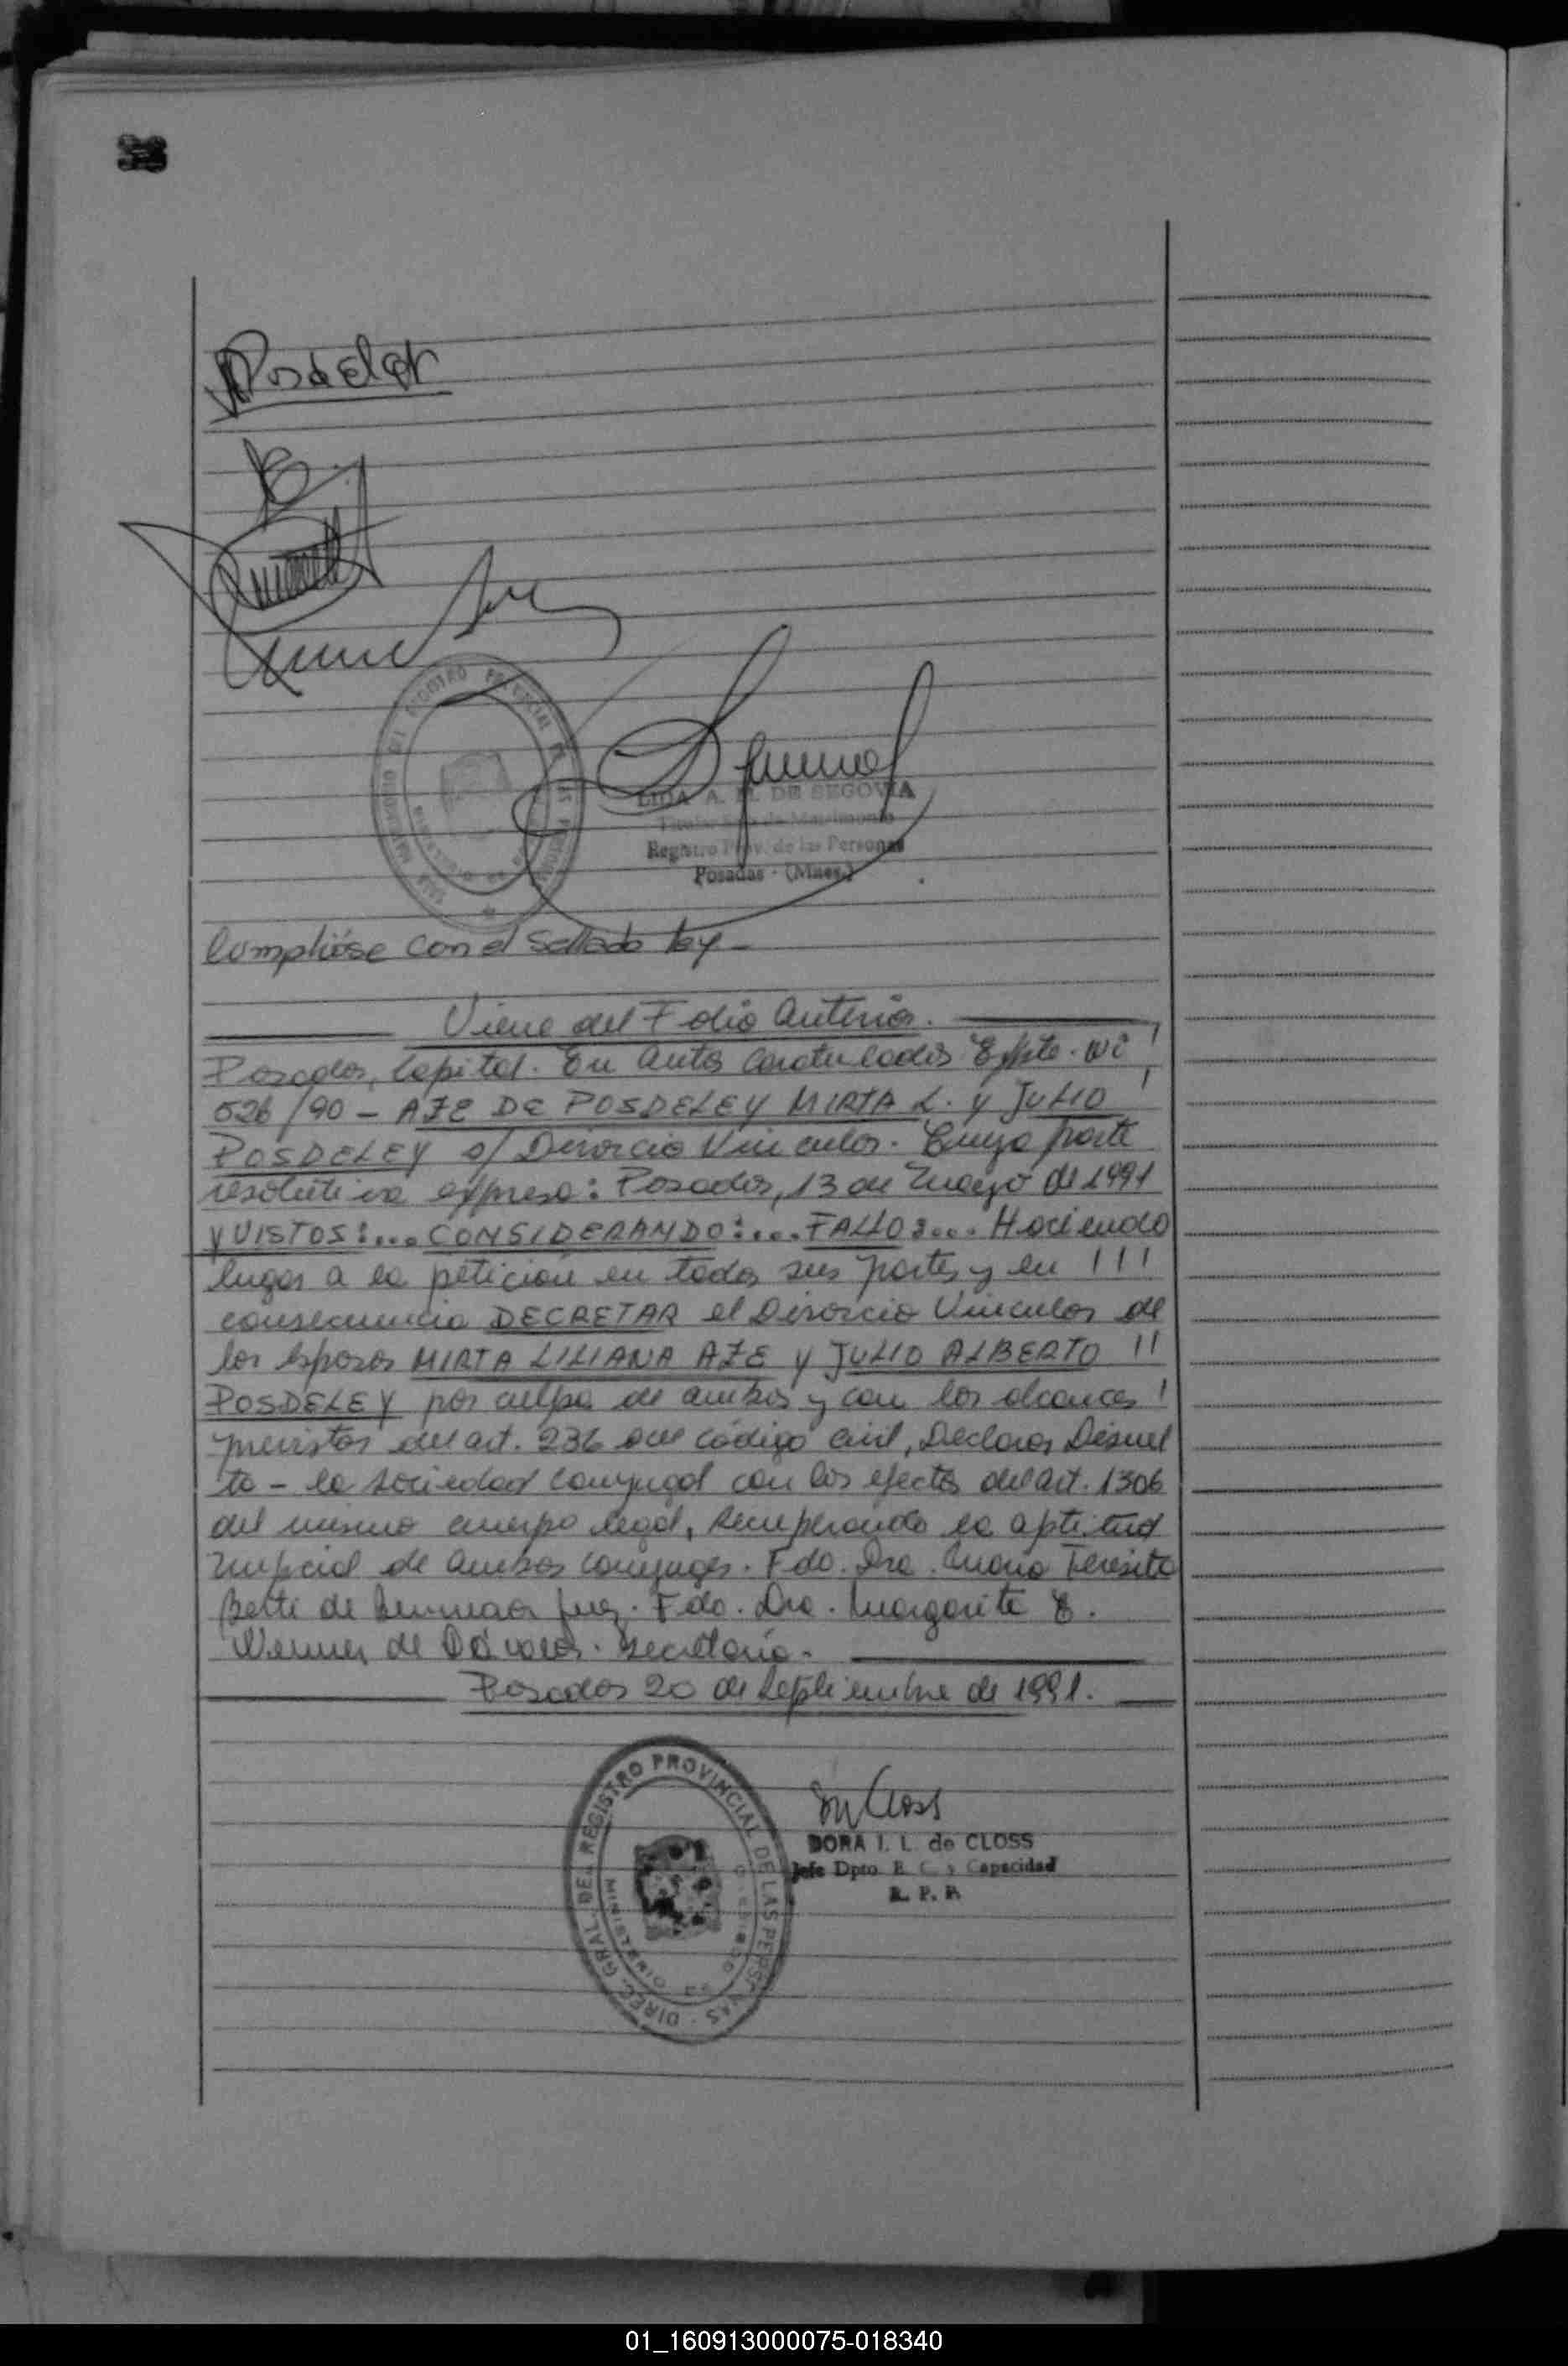 38
Posdeley
REGISTRO PROVINCIAL DE LAS PERSONAS
LIDA A. M. DE SEGOVIA
Titular de Matrimonio
Registro Prov. de las Personas
Posadas - (Mnes.)
Cumplióse con el Sellado ley -
Viene del Folio anterior.
Posadas, Capital. En autos caratulados Expte. Nº !
526/90 - AZE DE POSDELEY MIRTA L. y JULIO !
POSDELEY s/ Divorcio Vincular. Cuya parte
resolutiva expresa: Posadas, 13 de Mayo de 1991
Y VISTOS:... CONSIDERANDO:... FALLO:... Haciendo
lugar a la petición en todas sus partes y en !!!
consecuencia DECRETAR el Divorcio Vincular de
los esposos MIRTA LILIANA AZE y JULIO ALBERTO !!
POSDELEY por culpa de ambos y con los alcances !
previstos del art. 236 del código civil, Declarar Disuel
ta - la sociedad conyugal con los efectos del art. 1306
del mismo cuerpo legal, Recuperando la aptitud
nupcial de ambos conyuges. Fdo. Dra. Maria Teresita
Betti de Juez. Fdo. Dra. Margarita E.
Werner de Dávalos. Secretaria.
Posadas 20 de Septiembre de 1991.
DIREC. GRAL. DEL REGISTRO PROVINCIAL DE LAS PERSONAS
MINISTERIO DE GOBIERNO
DORA I. L. de CLOSS
Jefe Dpto. E. C. y Capacidad
R. P. P.
01_160913000075-018340